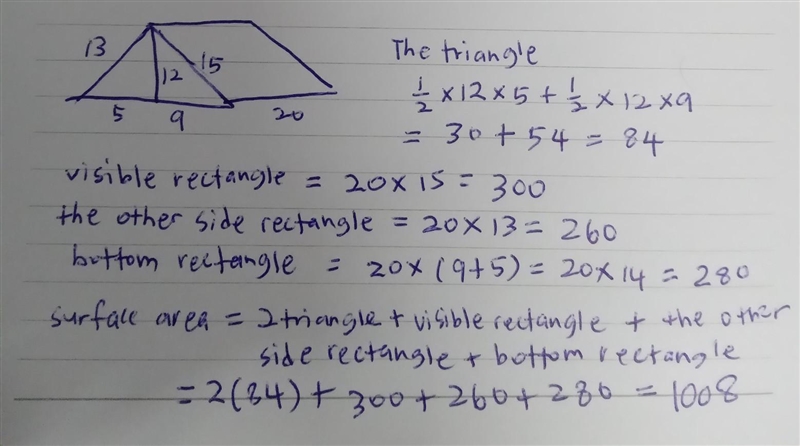 13
12
15
5
9
20
The triangle
1/2 × 12 × 5 + 1/2 × 12 × 9
= 30 + 54 = 84
visible rectangle = 20 × 15 = 300
the other side rectangle = 20 × 13 = 260
bottom rectangle = 20 × (9+5) = 20 × 14 = 280
surface area = 2 triangle + visible rectangle + the other
side rectangle + bottom rectangle
= 2(84) + 300 + 260 + 280 = 1008